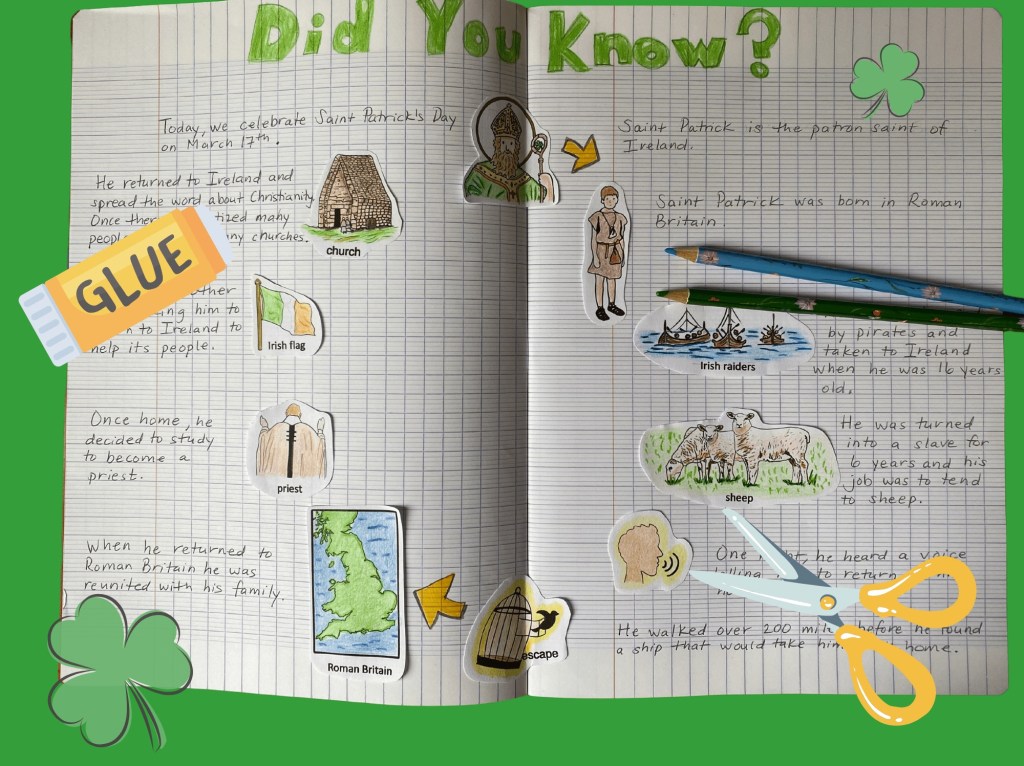 Did You Know?
Today, we celebrate Saint Patrick's Day
on March 17th.
He returned to Ireland and
spread the word about Christianity.
Once many
churches.
church
GLUE
him to
to Ireland to
help its people.
Irish flag
Once home, he
decided to study
to become a
priest.
priest
When he returned to
Roman Britain he was
reunited with his family.
Roman Britain
escape
Saint Patrick is the patron saint of
Ireland.
Saint Patrick was born in Roman
Britain.
by pirates and
taken to Ireland
when he was 16 years
old.
Irish raiders
He was turned
into a slave for
6 years and his
job was to tend
to sheep.
sheep
One he heard a voice
to return
He walked over 200 before he found
a ship that would take home.